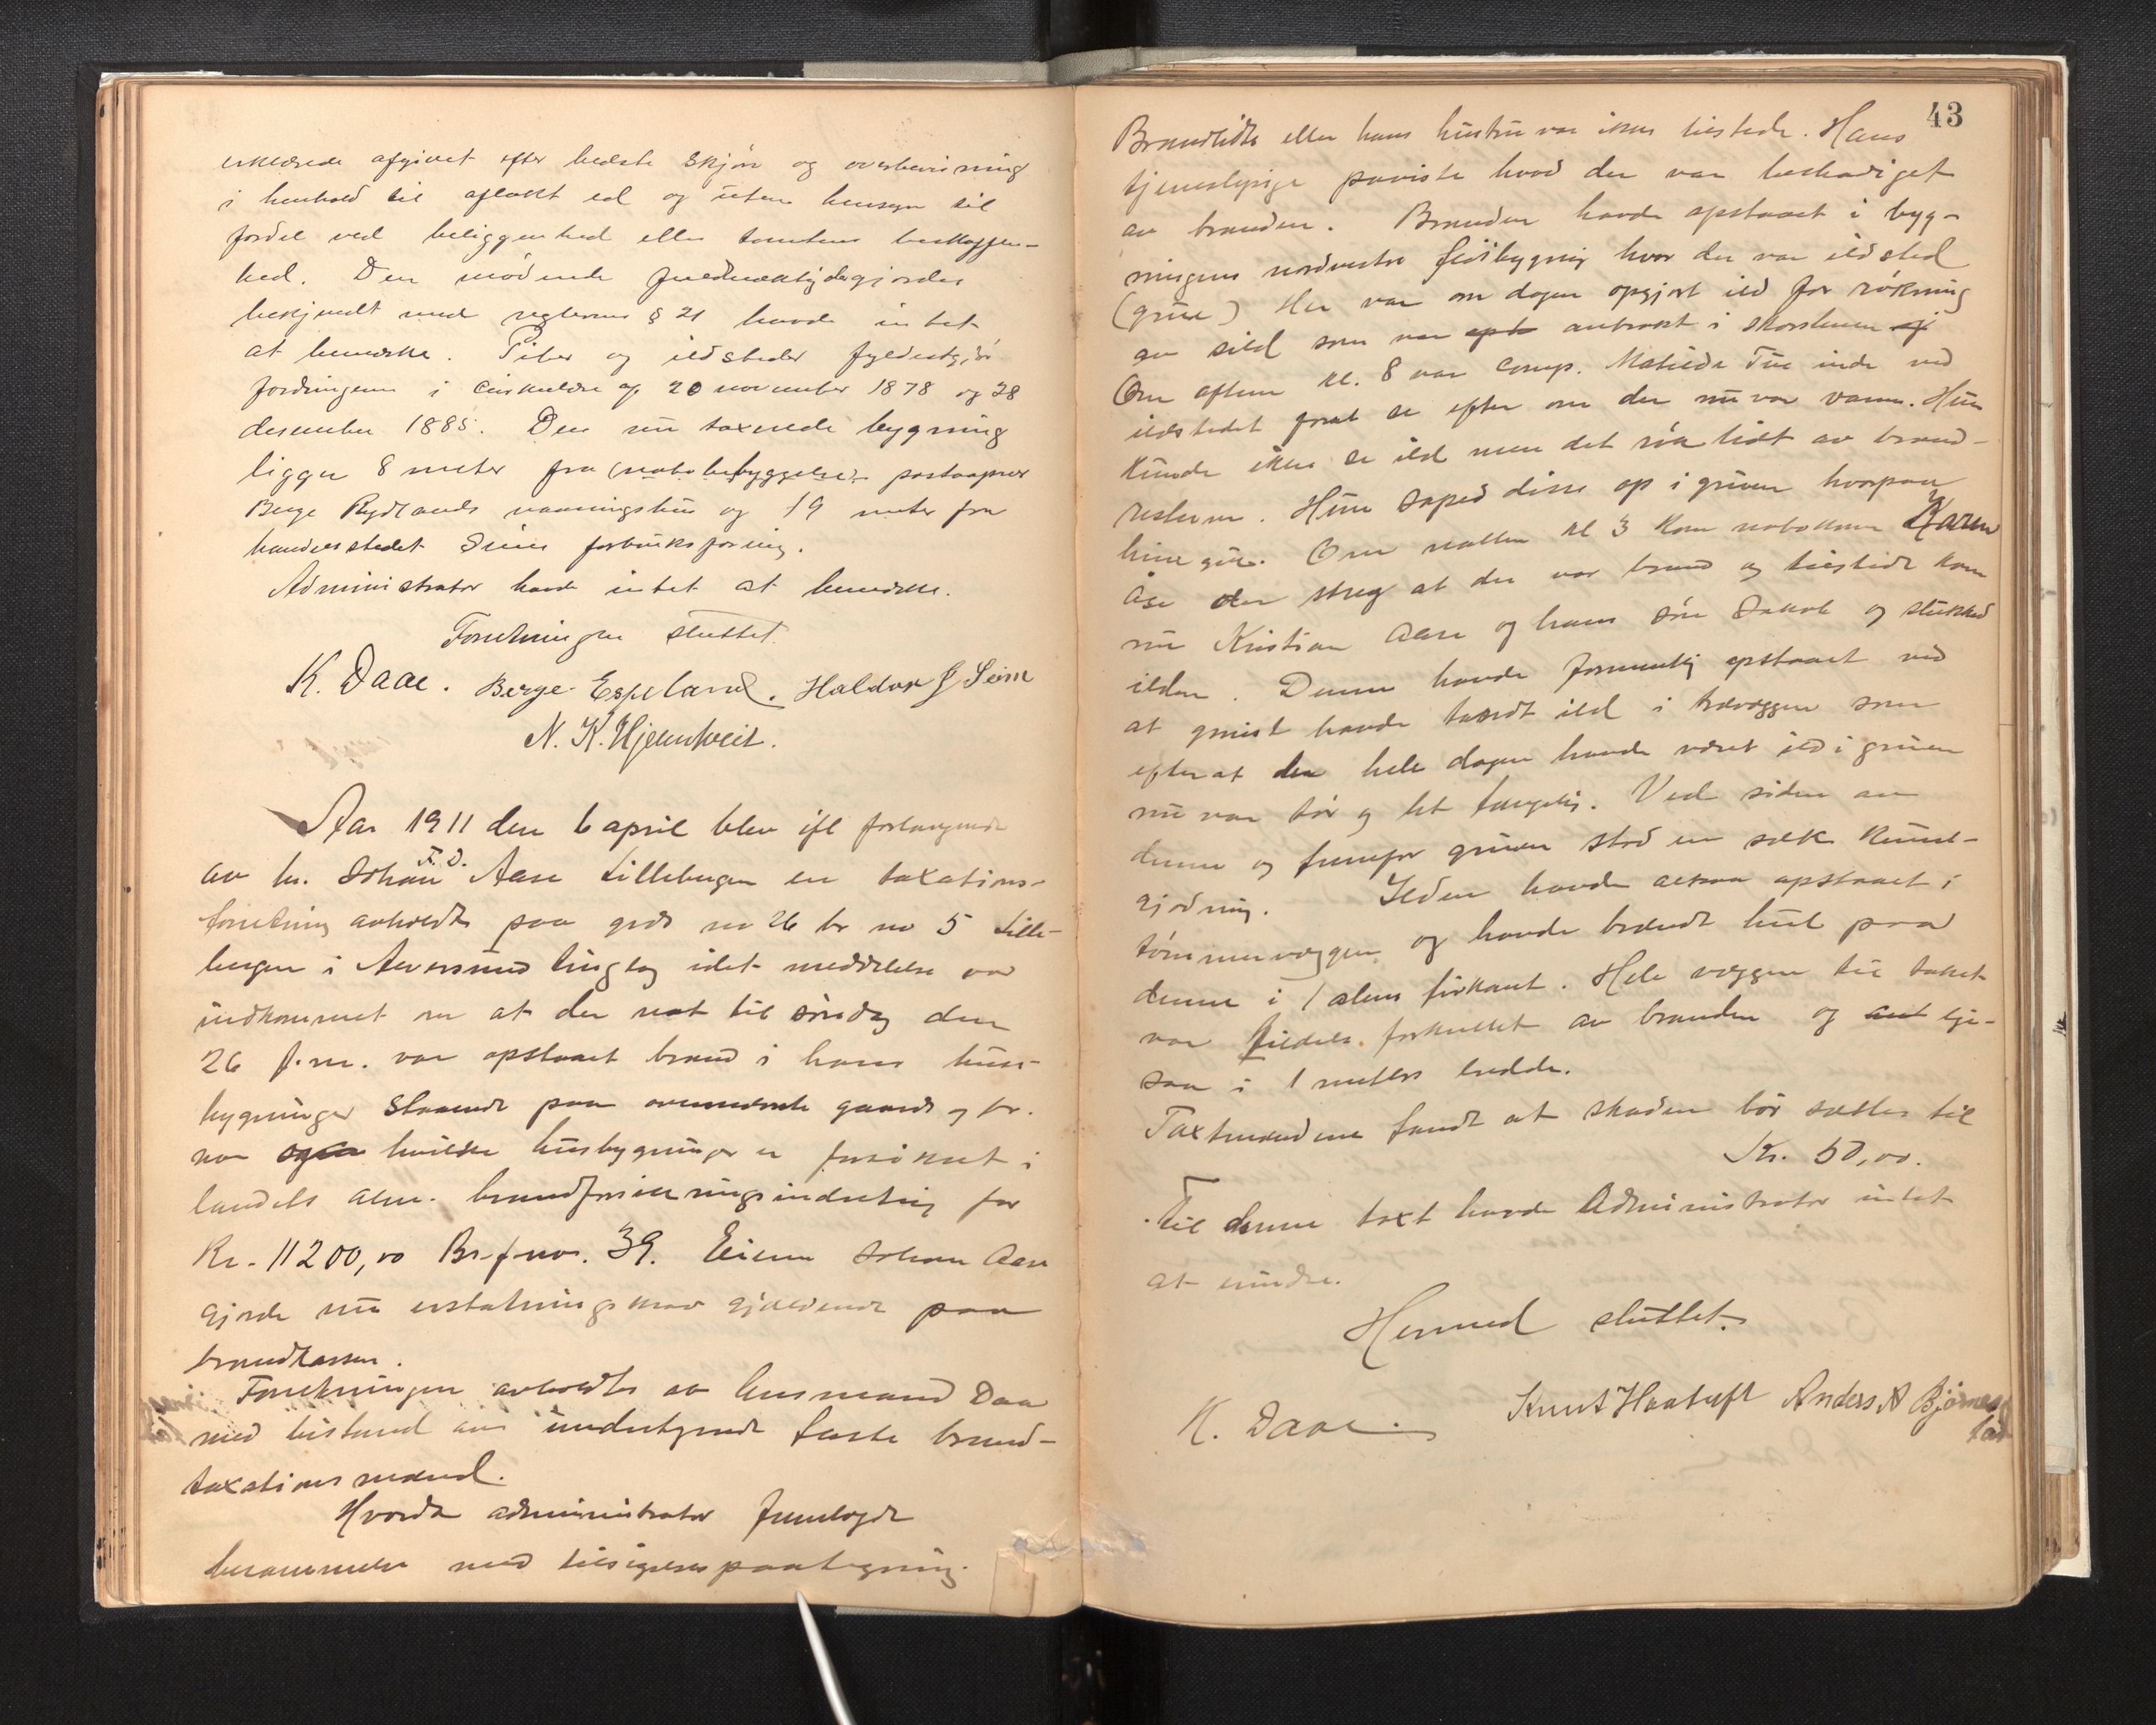 erklærede afgivet efter bedste skjøn og overbevisning
i henhold til aflakt ed og uten hensyn til
fordel ved beliggenhed eller tomtens beskaffen-
hed. Den mødende gjordes
bekjendt med reglerne § 21 havde intet
at bemerke. Piber og ildsteder fyldestgjør
fordringerne i Cirkulære af 20 november 1878 og 28
desember 1885. Den nu taxerede bygning
ligger 8 meter fra (nabobebyggelse)
Berge Rydlands vaaningshus og 19 meter fra
handelsstedet Seims forbruksforening.
Administrator havde intet at bemerke.
Forretningen sluttet.
K. Daae. Berge Espeland. Haldor J Seim
N. K. Hjelmtveit.
Aar 1911 den 6 april blev ifl forlangende
av hr. Johan F. D. Aase Lillebergen en taxations-
forretning avholdt paa grds no 26 br no 5 Lille-
bergen i Alversund tinglag idet meddelelse var
indkommet om at der nat til søndag den
26 f.m. var opstaaet brand i hans huse-
bygninger staaende paa ovennævnte gaards og br.
no hvilke husbygninger er forsikret i
landets alm. brandforsikringsindretning for
Kr. 11200,00 Br.f.no. 39. Eieren Johan Aase
gjorde nu erstatningskrav gjældende paa
brandkassen.
Forretningen avholdtes av lensmand Daae
med bistand av undertegnede faste brand-
taxationsmænd.
Hvorda administrator fremlagde
berammelse med tilsigelsespaategning.
43
Brandlidte eller hans hustru var ikke tilstede. Hans
tjenestepige paaviste hvad der var beskadiget
av branden. Branden havde opstaaet i byg-
ningens nordvestre fløibygning hvor der var ildsted
(grue) Her var om dagen opgjort ild for røkning
av sild som var anbrakt i skorstenen
Om aftenen kl. 8 var Matilde inde ved
ildstedet forat se efter om der nu var varme. Hun
kunde ikke se ild men det røk lidt av brand-
resterne. Hun soped disse op i gruen hvorpaa
hun gik. Om natten kl 3 kom nabokonen Karen
Åse der skreg at der var brand og tilstede kom
nu Kristian Aase og hans søn Jakob og slukked
ilden. Denne havde formentlig opstaaet ved
at gnist havde tændt ild i trævæggen som
efter at der hele dagen havde været ild i gruen
nu var tør og let fængelig. Ved siden av
denne og fremfor gruen stod en sæk kunst-
gjødning. Ilden havde altsaa opstaaet i
tømmervæggen og havde brændt hul paa
denne i 1 alens firkant. Hele væggen til taket
var tildels forkullet av branden og lige-
saa i 1 meters bredde.
Taxtmændene fandt at skaden bør sættes til
Kr. 50,00.
Til denne taxt havde Administrator intet
at erindre.
Hermed sluttet.
K. Daae. Knut Haatuft Anders A Bjørnes-
tad